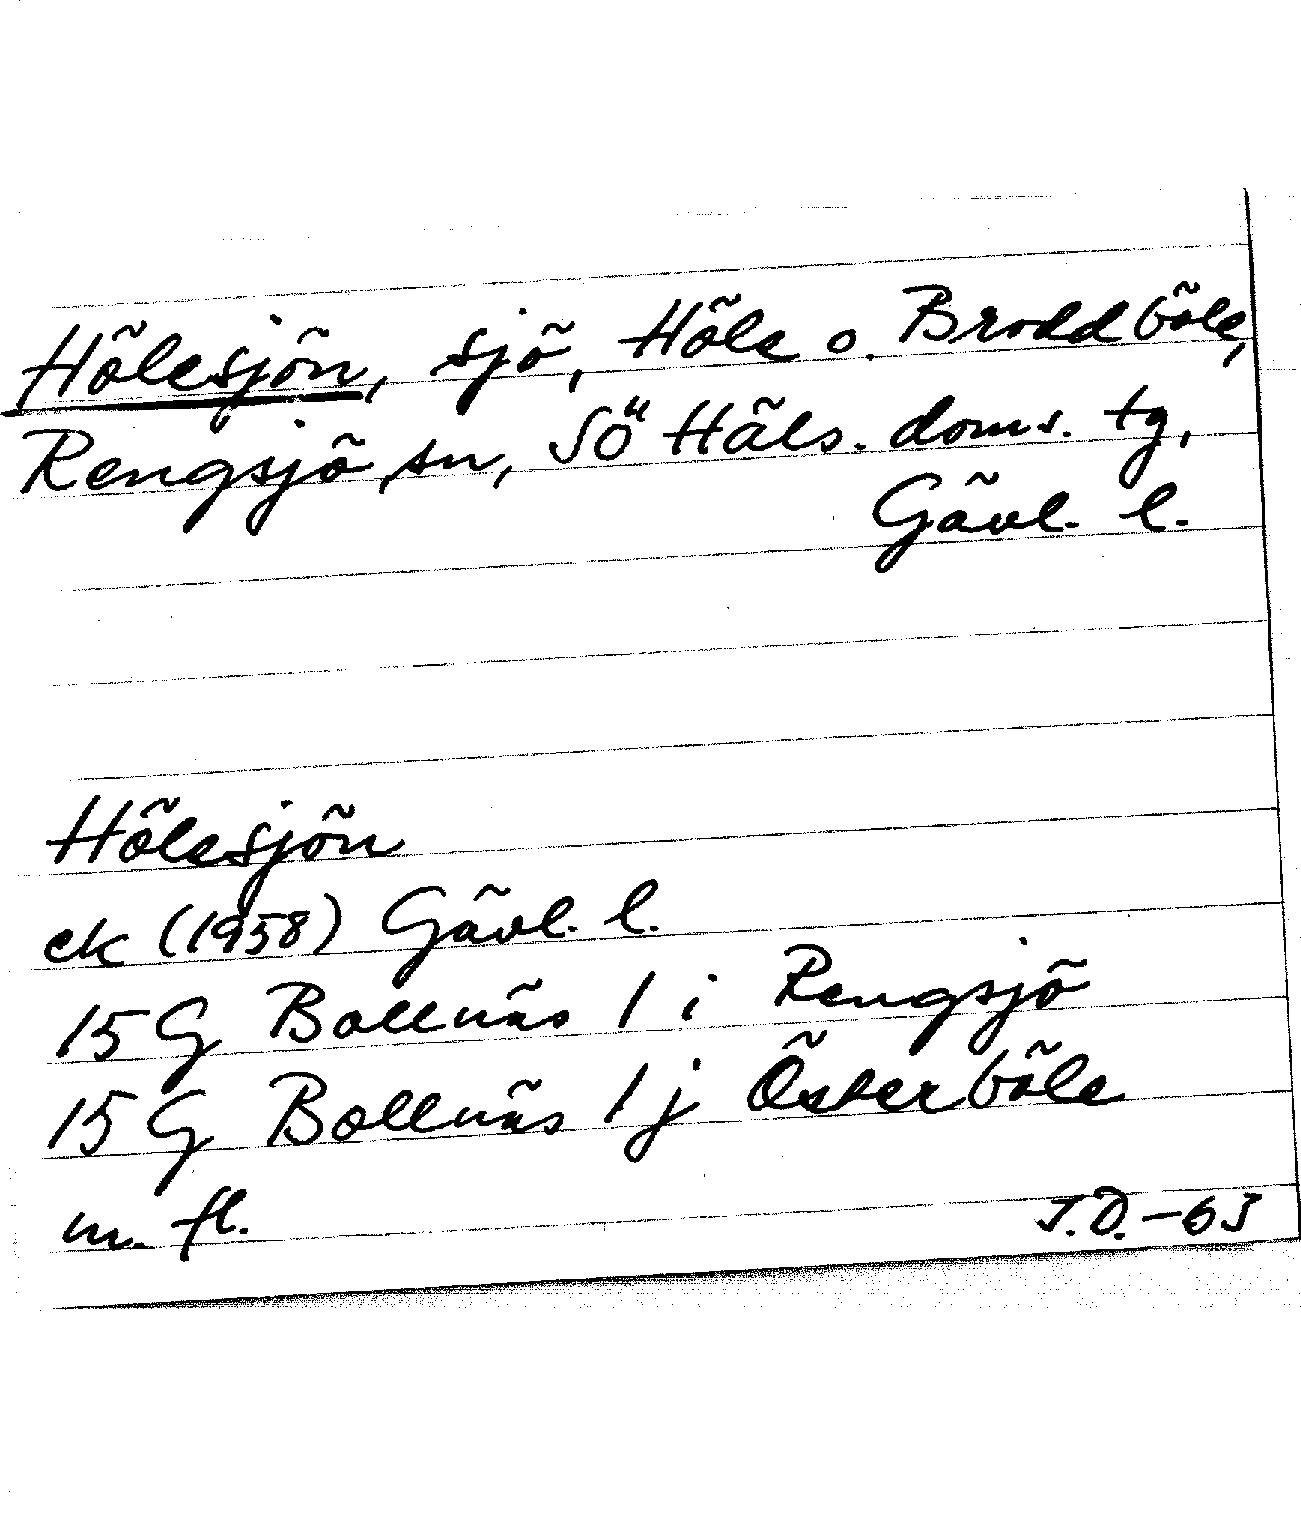 Hölesjön, sjö, Höle o. Broddböle,
Rengsjö sn, SÖ Häls. doms. tg,
Gävl. l.
Hölesjön
ek (1958) Gävl. l.
15 G Bollnäs 1 i Rengsjö
15 G Bollnäs 1 j Österböle
m. fl.
J.D. -63